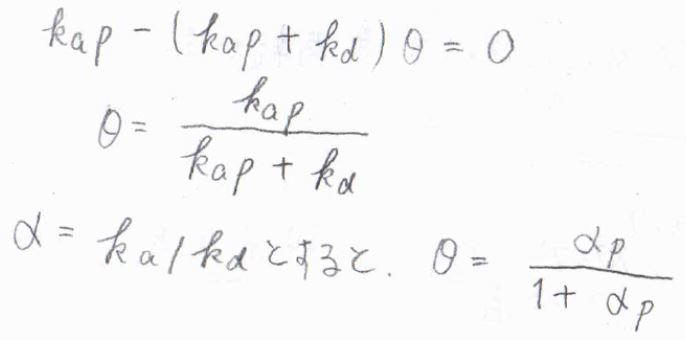 kap - (kap + kd) θ = 0
θ = kap / (kap + kd)
α = ka/kdとすると. θ = αp / (1 + αp)